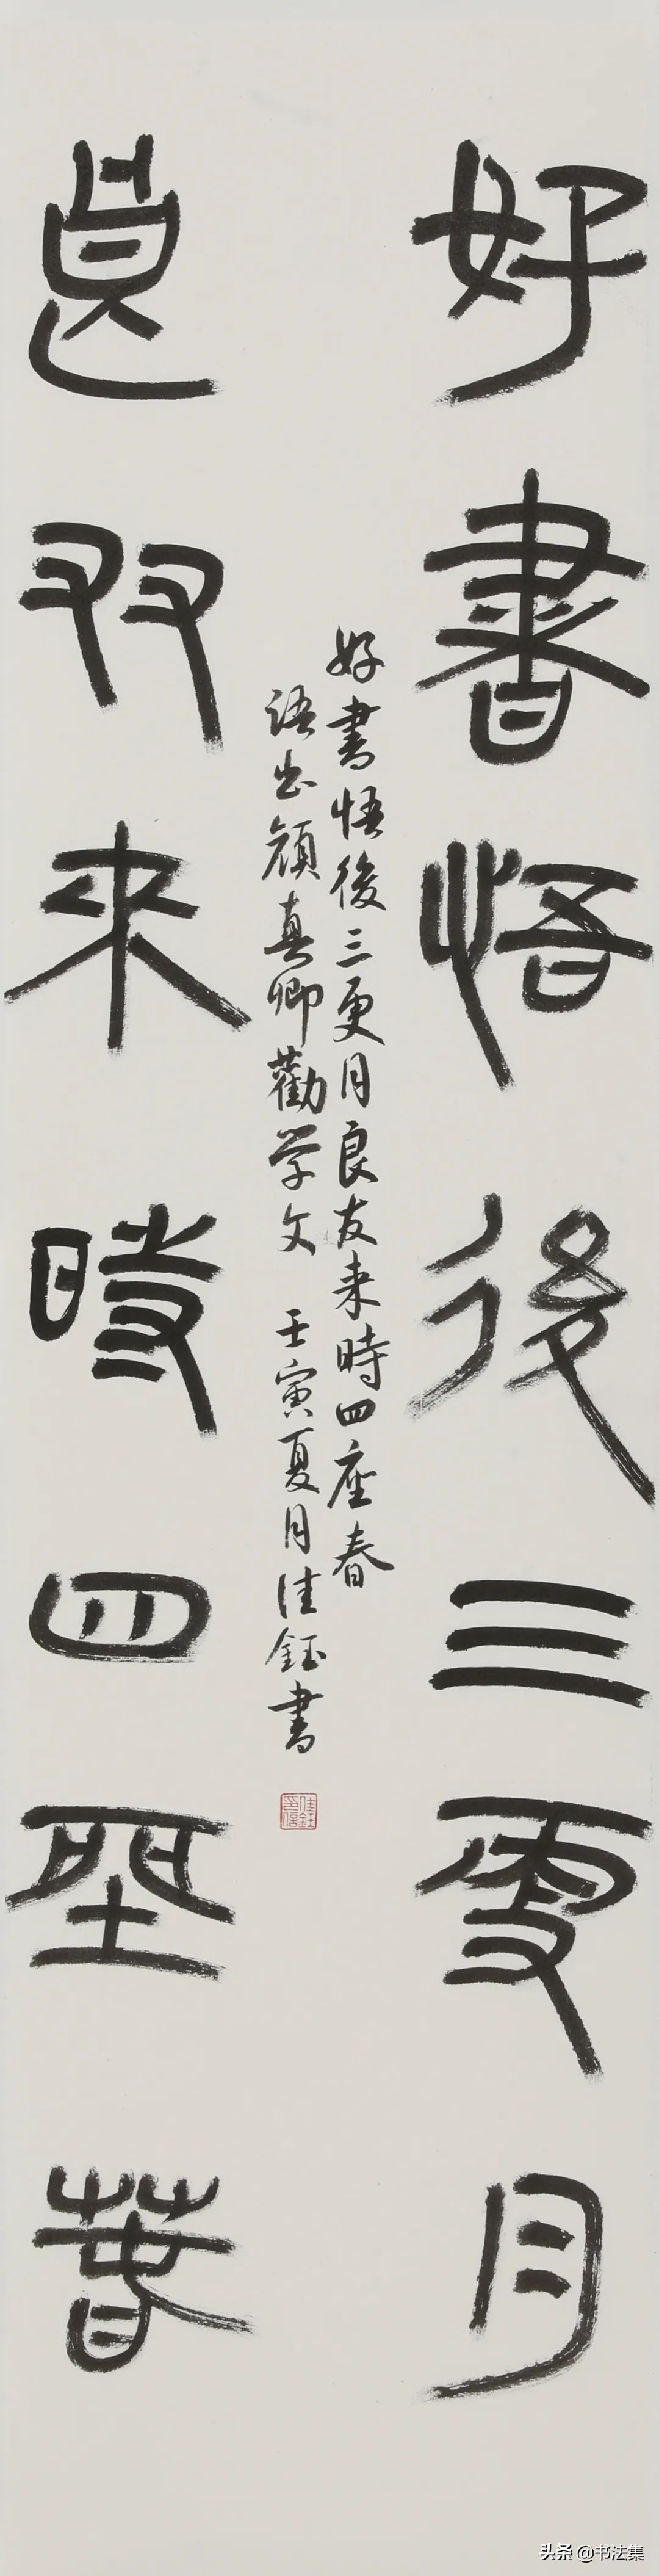 好書悟後三更月
良友來時四座春
好書悟後三更月良友来時四座春
語出顔真卿勸学文 壬寅夏月佳鈺書
佳鈺印信
头条 @书法集